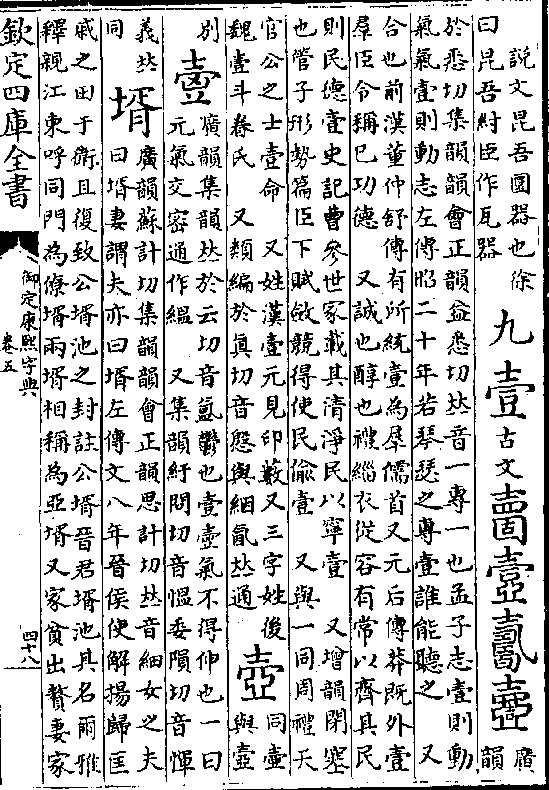 說文昆吾圜器也徐
曰昆吾紂臣作瓦器
九
壹古文
廣
韻
於悉切集韻韻會正韻益悉切𠀤音一專一也孟子志壹則動
氣氣壹則動志左傳昭二十年若琴瑟之專壹誰能聽之 又
合也前漢董仲舒傳有所統壹為羣儒首又元后傳莽既外壹
羣臣令稱已功德 又誠也醇也禮緇衣從容有常以齊其民
則民德壹史記曹參世家載其清淨民以寧壹 又增韻閉塞
也管子形勢篇臣下賦斂競得使民偷壹 又與一同周禮天
官公之士壹命 又姓漢壹元見印藪又三字姓後
魏壹斗眷氏 又類編於真切音慇與絪氤𠀤通
同壺
與壺
別
廣韻集韻𠀤於云切音氳鬱也壹壺氣不得伸也一曰
元氣交密通作緼 又集韻紆問切音慍委隕切音惲
義𠀤
同
壻
廣韻蘇計切集韻韻會正韻思計切𠀤音細女之夫
曰壻妻謂夫亦曰壻左傳文八年晉侯使解揚歸匡
戚之田于衛且復致公壻池之封註公壻晉君壻池其名爾雅
釋親江東呼同門為僚壻兩壻相稱為亞壻又家貧出贅妻家
欽定四庫全書
御定康熙字典
卷五
四十八